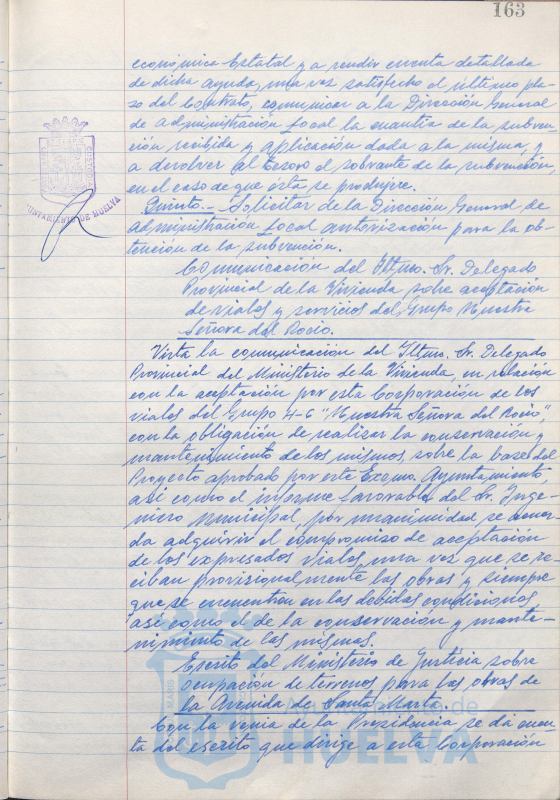 163
económica Estatal y a rendir cuenta detallada
de dicha ayuda, una vez satisfecho el último pla-
zo del Contrato, comunicar a la Dirección General
de Administración Local la cuantía de la subven-
ción recibida y aplicación dada a la misma, y
a devolver al Tesoro el sobrante de la subvención,
en el caso de que ésta se produjere.
Quinto.- Solicitar de la Dirección General de
Administración Local autorización para la ob-
tención de la subvención.
Comunicación del Iltmo. Sr. Delegado
Provincial de la Vivienda sobre aceptación
de viales y servicios del Grupo Nuestra
Señora del Rocío.
Vista la comunicación del Iltmo. Sr. Delegado
Provincial del Ministerio de la Vivienda, en relación
con la aceptación por esta Corporación de los
viales del Grupo H-6 "Nuestra Señora del Rocío",
con la obligación de realizar la conservación y
mantenimiento de los mismos, sobre la base del
Proyecto aprobado por este Excmo. Ayuntamiento,
así como el informe favorable del Sr. Inge-
niero Municipal, por unanimidad se acuer-
da adquirir el compromiso de aceptación
de los expresados viales, una vez que se re-
ciban provisionalmente las obras y siempre
que se encuentren en las debidas condiciones,
así como el de la conservación y mante-
nimiento de las mismas.
Escrito del Ministerio de Justicia sobre
ocupación de terrenos para las obras de
la Avenida de Santa Marta.
Con la venia de la Presidencia se da cuen-
ta del escrito que dirige a esta Corporación
AYUNTAMIENTO DE HUELVA
Ayuntamiento de
HUELVA